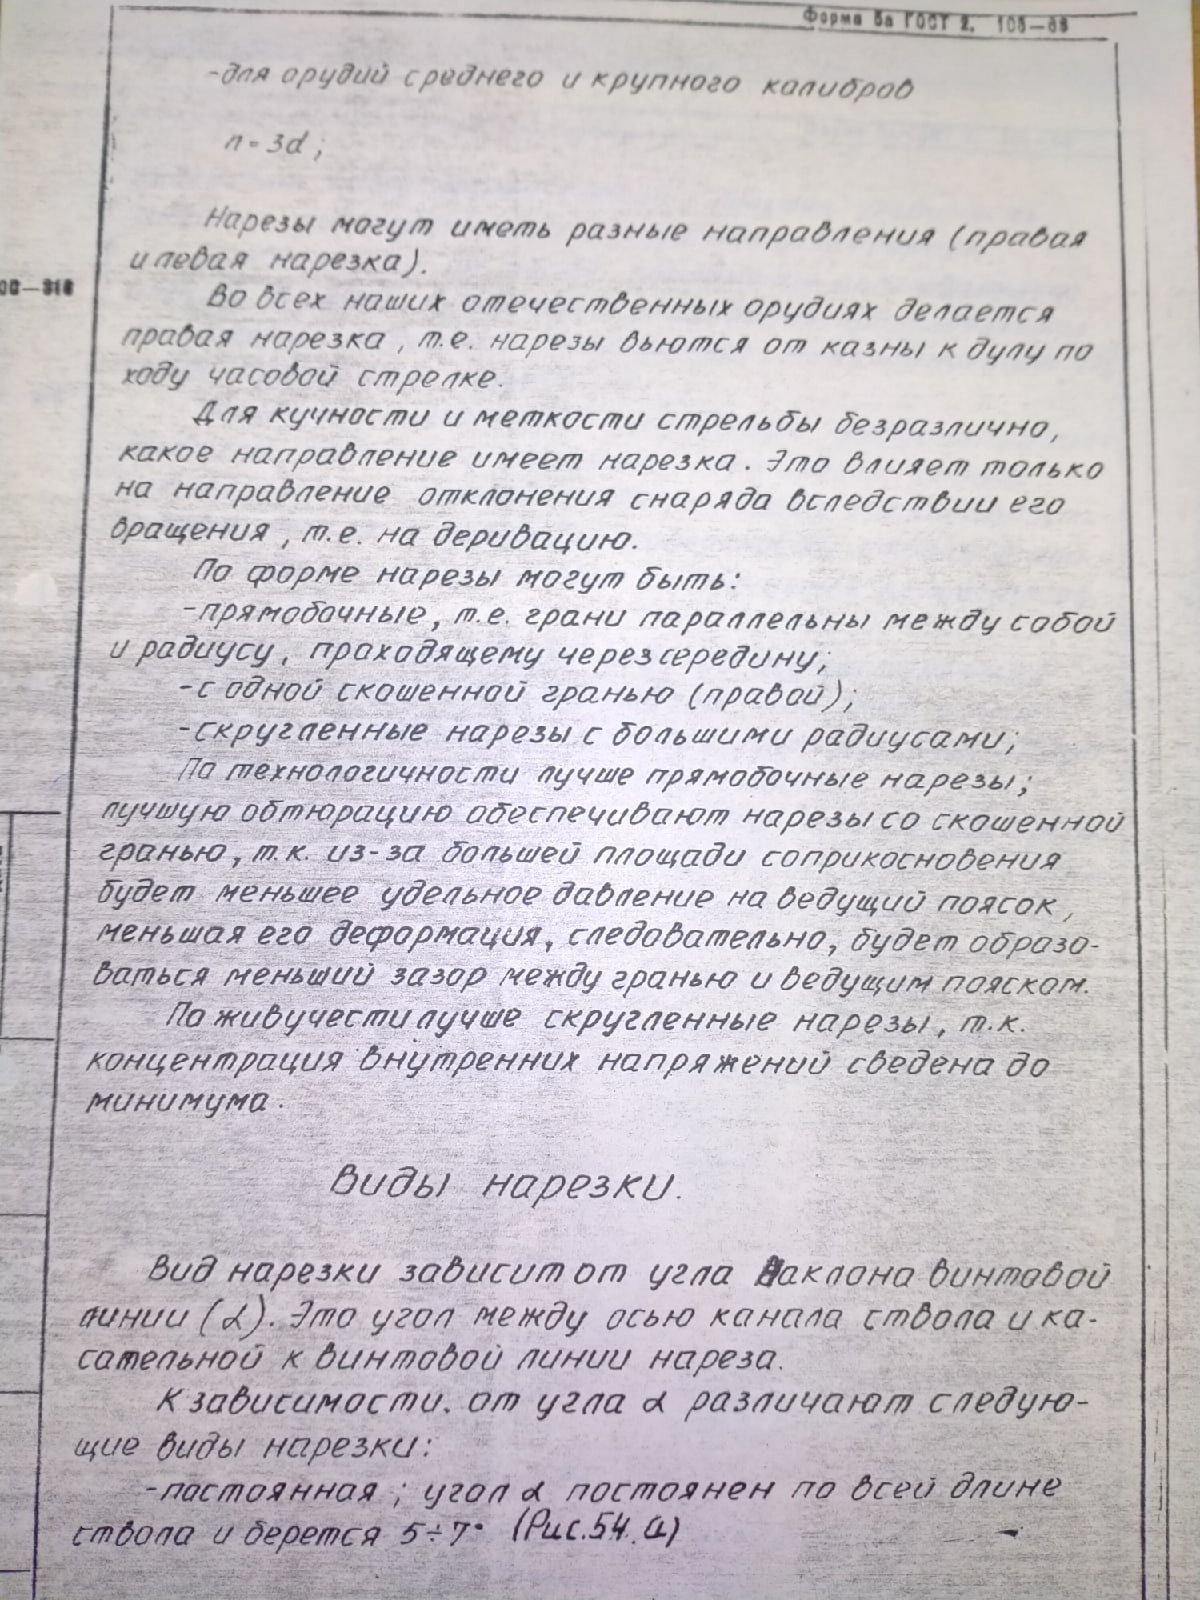 Форма 5а ГОСТ 2. 106—68
-для орудий среднего и крупного калибров
n = 3d ;
Нарезы могут иметь разные направления (правая
и левая нарезка).
Во всех наших отечественных орудиях делается
правая нарезка, т.е. нарезы вьются от казны к дулу по
ходу часовой стрелке.
Для кучности и меткости стрельбы безразлично,
какое направление имеет нарезка. Это влияет только
на направление отклонения снаряда вследствии его
вращения, т.е. на деривацию.
По форме нарезы могут быть:
-прямобочные, т.е. грани параллельны между собой
и радиусу, проходящему через середину;
-с одной скошенной гранью (правой);
-скругленные нарезы с большими радиусами;
По технологичности лучше прямобочные нарезы;
лучшую обтюрацию обеспечивают нарезы со скошенной
гранью, т.к. из-за большей площади соприкосновения
будет меньшее удельное давление на ведущий поясок,
меньшая его деформация, следовательно, будет образо-
ваться меньший зазор между гранью и ведущим пояском.
По живучести лучше скругленные нарезы, т.к.
концентрация внутренних напряжений сведена до
минимума.
Виды нарезки.
Вид нарезки зависит от угла наклона винтовой
линии (α). Это угол между осью канала ствола и ка-
сательной к винтовой линии нареза.
К зависимости. от угла α различают следую-
щие виды нарезки:
-постоянная; угол α постоянен по всей длине
ствола и берется 5÷7° (Рис.54.а)